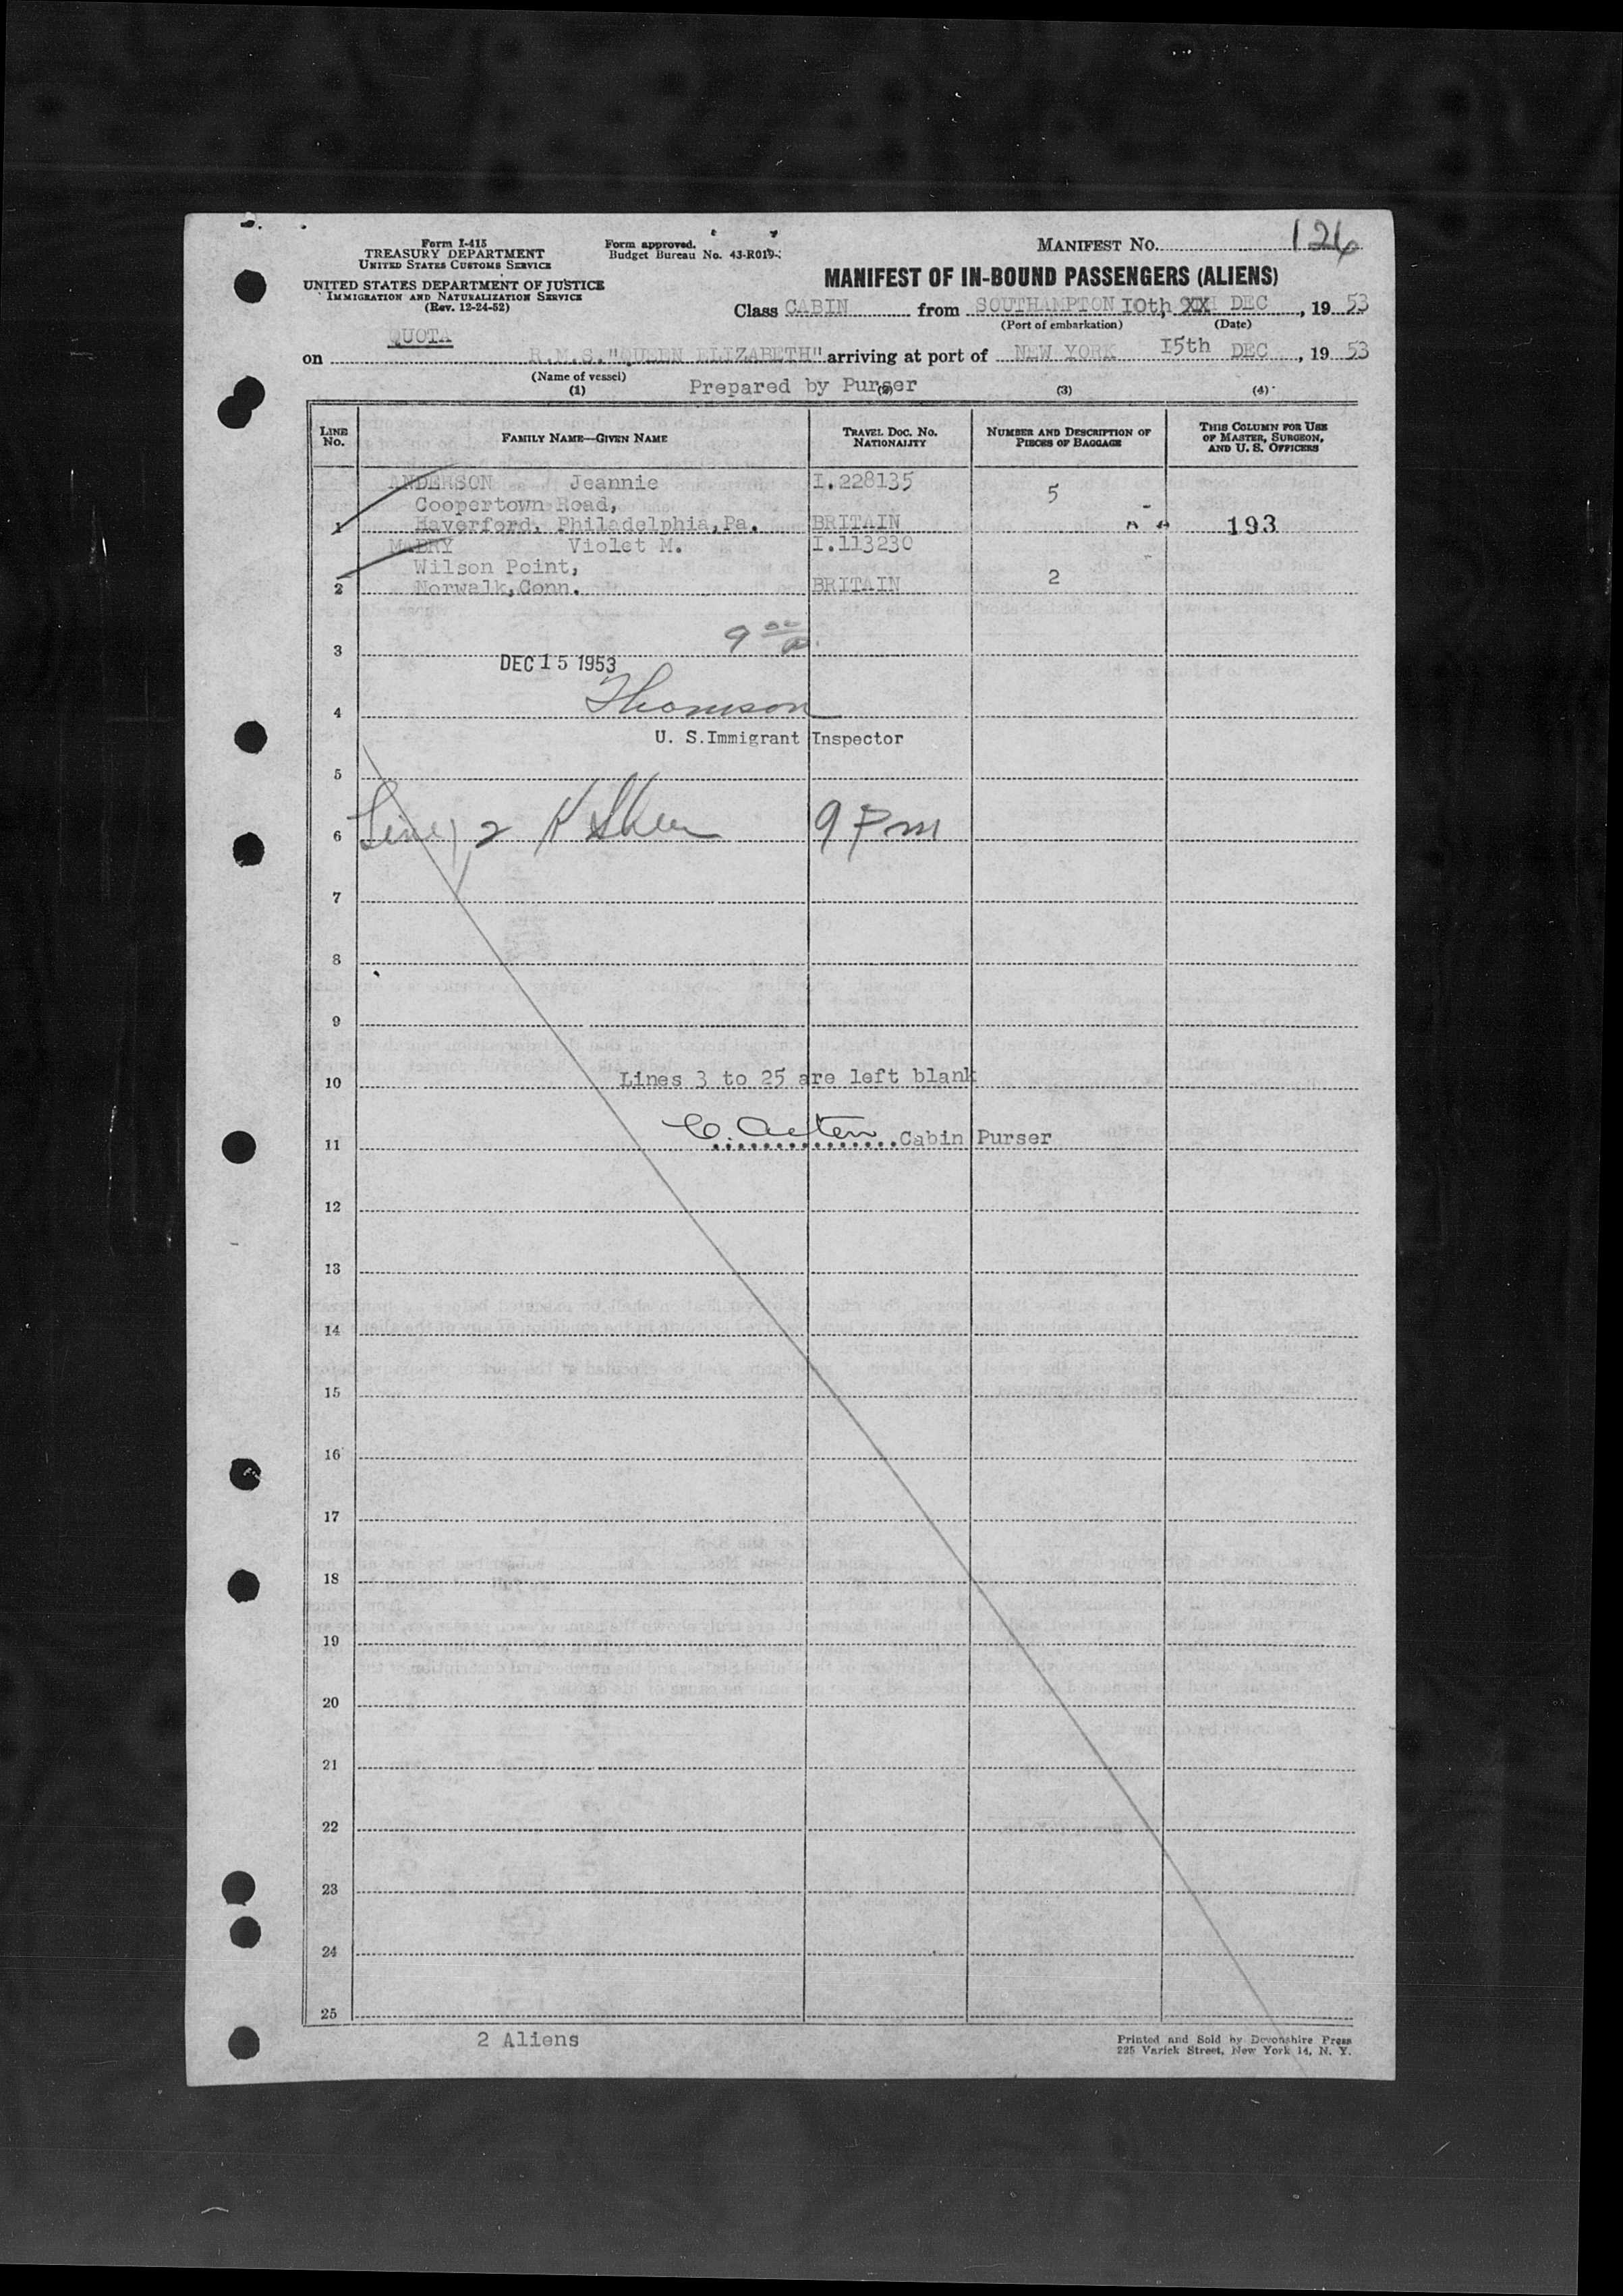 Form I-415
TREASURY DEPARTMENT
UNITED STATES CUSTOMS SERVICE
UNITED STATES DEPARTMENT OF JUSTICE
IMMIGRATION AND NATURALIZATION SERVICE
(Rev. 12-24-52)
Form approved.
Budget Bureau No. 43-R019-
MANIFEST No. 126
MANIFEST OF IN-BOUND PASSENGERS (ALIENS)
Class CABIN from SOUTHAMPTON 10th, XX DEC, 19 53
(Port of embarkation) (Date)
QUOTA
on R.M.S."QUEEN ELIZABETH" arriving at port of NEW YORK 15th DEC, 19 53
(Name of vessel)
Prepared by Purser
(1) (2) (3) (4)
LINE No. FAMILY NAME—GIVEN NAME TRAVEL DOC. NO. NATIONALITY NUMBER AND DESCRIPTION OF PIECES OF BAGGAGE THIS COLUMN FOR USE OF MASTER, SURGEON, AND U. S. OFFICERS
ANDERSON Jeannie I.228135
Coopertown Road, 5
1 Haverford, Philadelphia,Pa. BRITAIN 193
MABRY Violet M. I.113230
Wilson Point, 2
2 Norwalk,Conn. BRITAIN
3 9 00
DEC 15 1953
4 Thomson
U. S.Immigrant Inspector
5
6 Line 2 9 Pm
7
8
9
10 Lines 3 to 25 are left blank
11 Cabin Purser
12
13
14
15
16
17
18
19
20
21
22
23
24
25
2 Aliens
Printed and Sold by Devonshire Press
225 Varick Street, New York 14, N. Y.